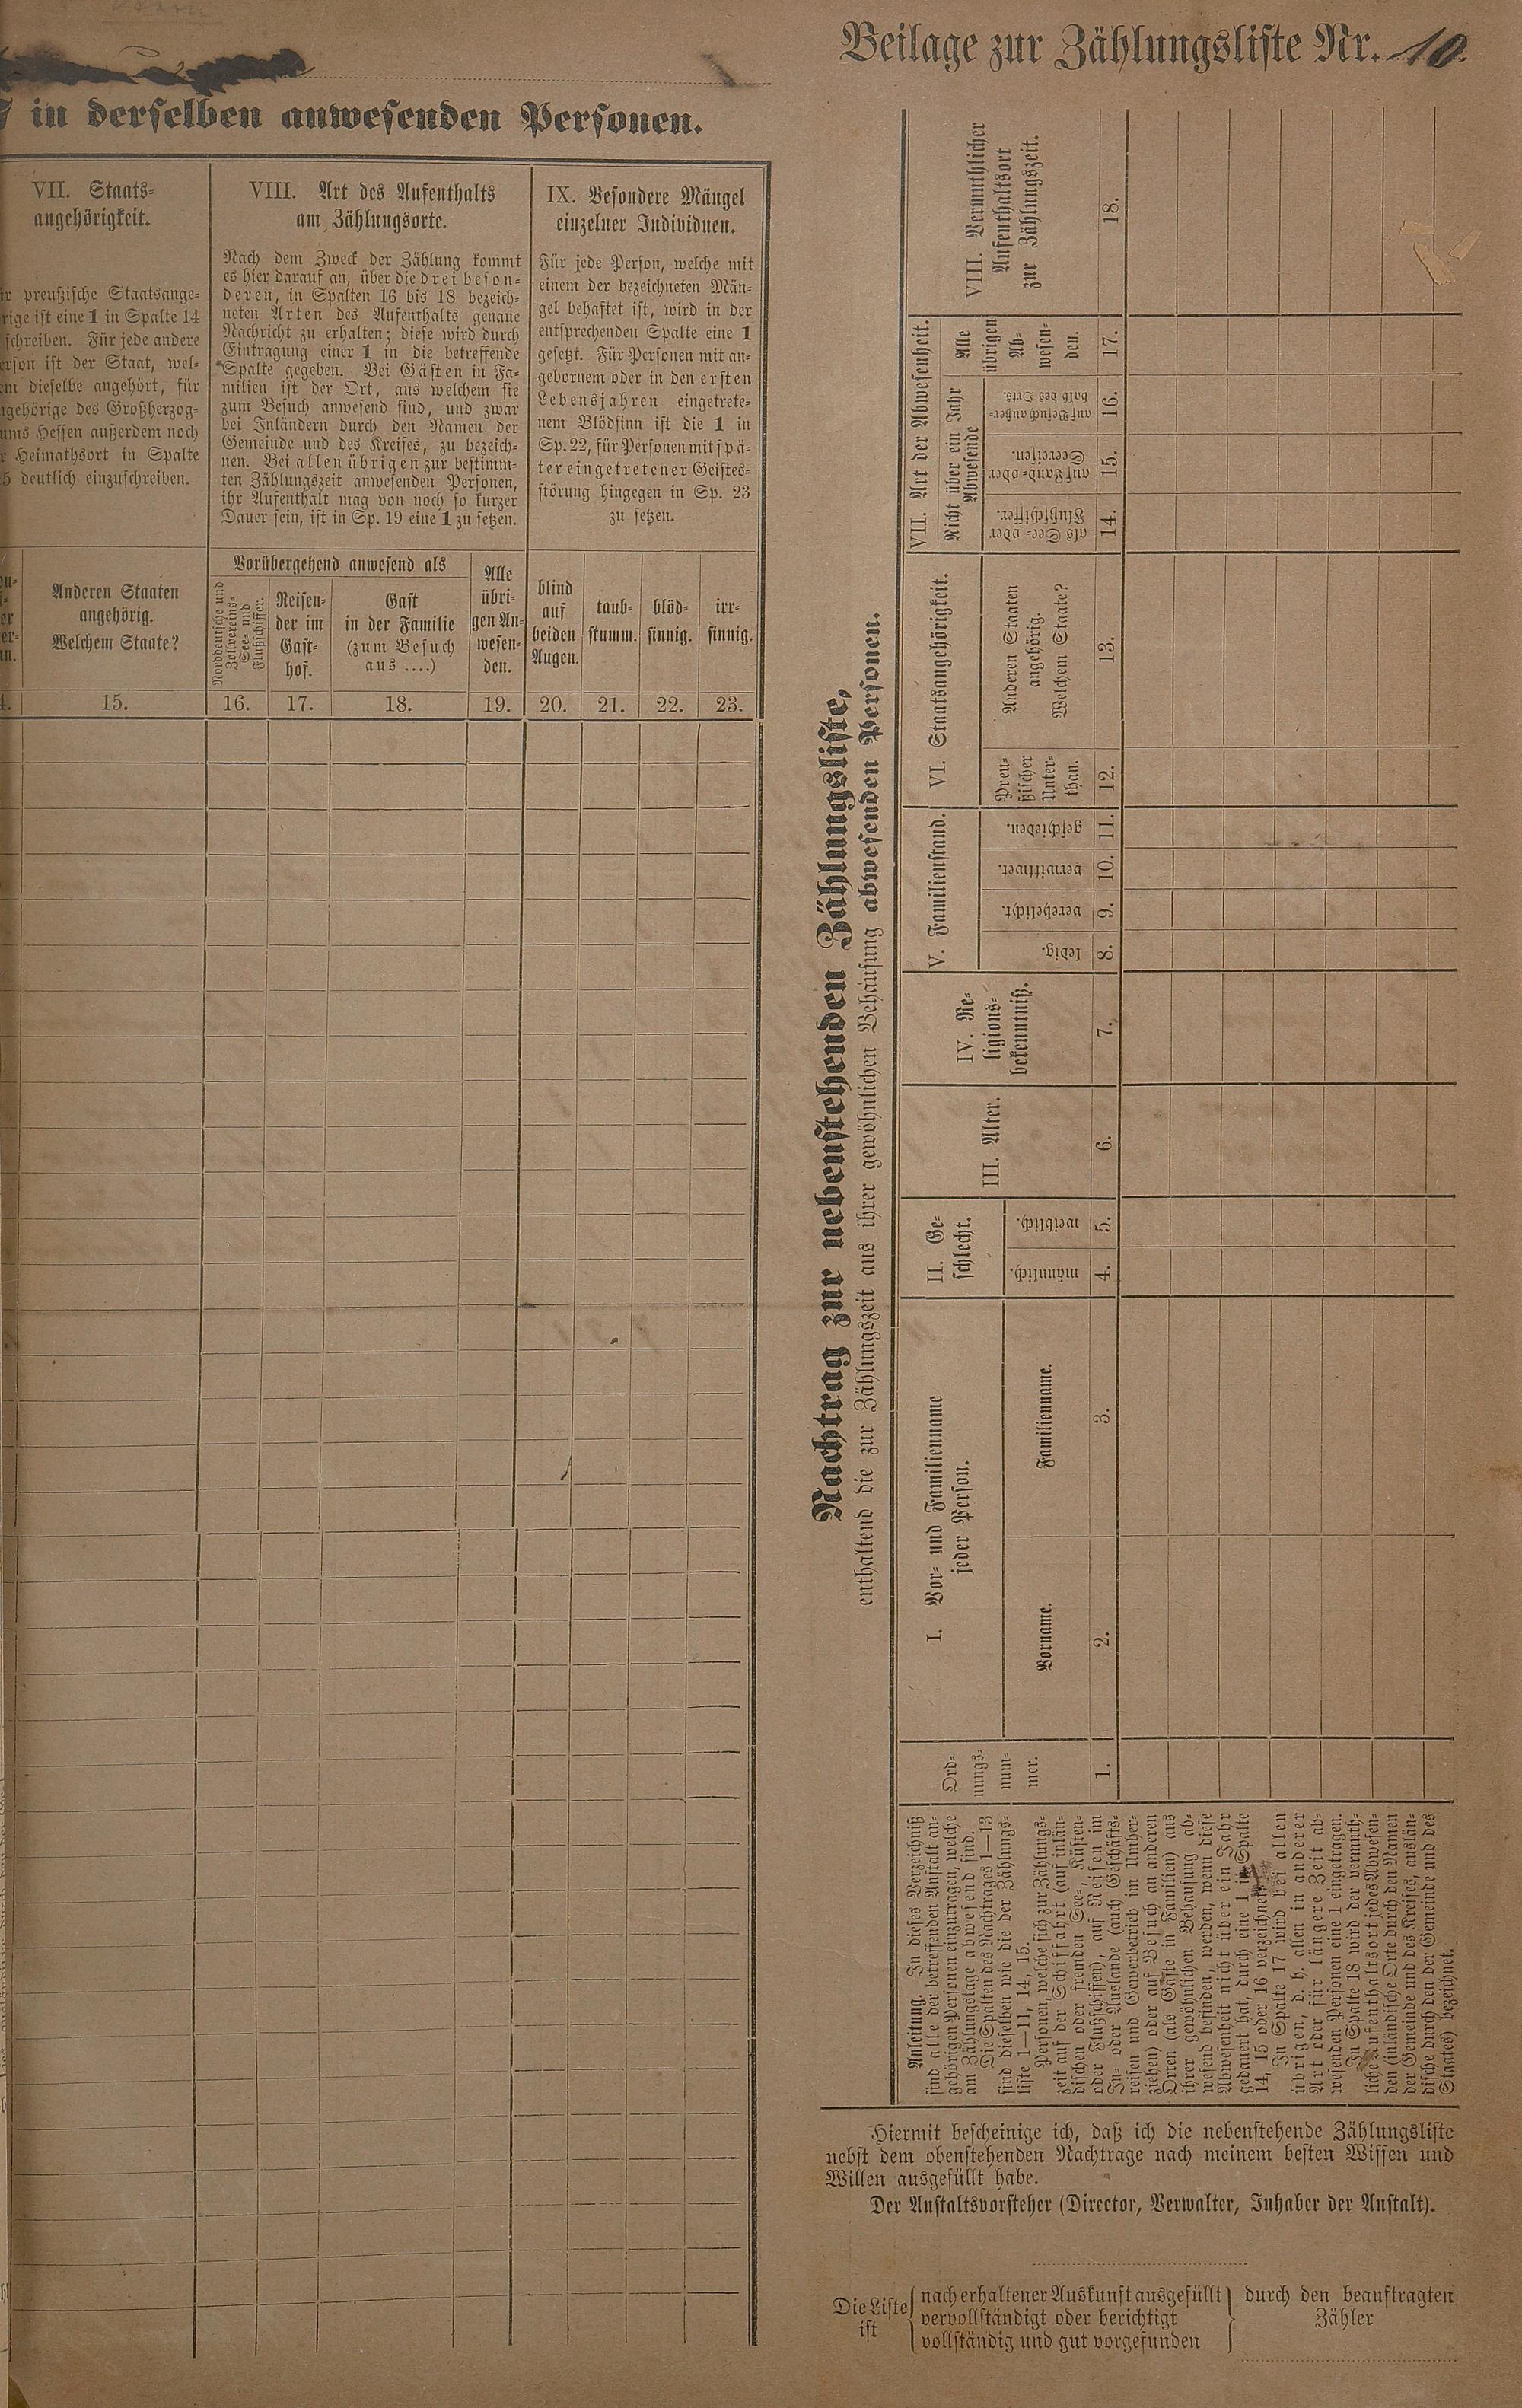 Beilage zur Zählungsliste Nr. 10.
in derselben anwesenden Personen.
VII. Staats-
angehörigkeit.
preußische Staatsange-
rige ist eine 1 in Spalte 14
schreiben. Für jede andere
erson ist der Staat, wel-
em dieselbe angehört, für
ngehörige des Großherzog-
ums Hessen außerdem noch
r Heimathsort in Spalte
5 deutlich einzuschreiben.
Anderen Staaten
angehörig.
Welchem Staate?
15.
VIII. Art des Aufenthalts
am Zählungsorte.
Nach dem Zweck der Zählung kommt
es hier darauf an, über die drei beson-
deren, in Spalten 16 bis 18 bezeich-
neten Arten des Aufenthalts genaue
Nachricht zu erhalten; diese wird durch
Eintragung einer 1 in die betreffende
Spalte gegeben. Bei Gästen in Fa-
milien ist der Ort, aus welchem sie
zum Besuch anwesend sind, und zwar
bei Inländern durch den Namen der
Gemeinde und des Kreises, zu bezeich-
nen. Bei allen übrigen zur bestimm-
ten Zählungszeit anwesenden Personen,
ihr Aufenthalt mag von noch so kurzer
Dauer sein, ist in Sp. 19 eine 1 zu setzen.
Vorübergehend anwesend als
Norddeutsche und
Zollvereins-
See- und
Flußschiffer.
Reisen-
der im
Gast-
hof.
Gast
in der Familie
(zum Besuch
aus ....)
Alle
übri-
gen An-
wesen-
den.
16. 17. 18. 19.
IX. Besondere Mängel
einzelner Individuen.
Für jede Person, welche mit
einem der bezeichneten Män-
gel behaftet ist, wird in der
entsprechenden Spalte eine 1
gesetzt. Für Personen mit an-
gebornem oder in den ersten
Lebensjahren eingetrete-
nem Blödsinn ist die 1 in
Sp. 22, für Personen mit spä-
ter eingetretener Geistes-
störung hingegen in Sp. 23
zu setzen.
blind
auf
beiden
Augen.
taub-
stumm.
blöd-
sinnig.
irr-
sinnig.
20. 21. 22. 23.
Nachtrag zur nebenstehenden Zählungsliste,
enthaltend die zur Zählungszeit aus ihrer gewöhnlichen Behausung abwesenden Personen.
Anleitung. In dieses Verzeichniß
sind alle der betreffenden Anstalt an-
gehörigen Personen einzutragen, welche
am Zählungstage abwesend sind.
Die Spalten des Nachtrages 1—13
sind dieselben wie die der Zählungs-
liste 1—11, 14, 15.
Personen, welche sich zur Zählungs-
zeit auf der Schiffahrt (auf inlän-
dischen oder fremden See-, Küsten-
oder Flußschiffen), auf Reisen im
In- oder Auslande (auch Geschäfts-
reisen und Gewerbetrieb im Umher-
ziehen) oder auf Besuch an anderen
Orten (als Gäste in Familien) aus
ihrer gewöhnlichen Behausung ab-
wesend befinden, werden, wenn diese
Abwesenheit nicht über ein Jahr
gedauert hat, durch eine 1 in Spalte
14, 15 oder 16 verzeichnet.
In Spalte 17 wird bei allen
übrigen, d. h. allen in anderer
Art oder für längere Zeit ab-
wesenden Personen eine 1 eingetragen.
In Spalte 18 wird der vermuth-
liche Aufenthaltsort jedes Abwesen-
den (inländische Orte durch den Namen
der Gemeinde und des Kreises, auslän-
dische durch den der Gemeinde und des
Staates) bezeichnet.
Ord-
nungs-
num-
mer.
1.
I. Vor- und Familienname
jeder Person.
Vorname.
2.
Familienname.
3.
II. Ge-
schlecht.
männlich.
4.
weiblich.
5.
III. Alter.
6.
IV. Re-
ligions-
bekenntniß.
7.
V. Familienstand.
ledig.
8.
verehelicht.
9.
verwittwet.
10.
geschieden.
11.
VI. Staatsangehörigkeit.
Preu-
ßischer
Unter-
than.
12.
Anderen Staaten
angehörig.
Welchem Staate?
13.
VII. Art der Abwesenheit.
Nicht über ein Jahr
Abwesende
als See- oder
Flußschiffer.
14.
auf Land- oder
Seereisen.
15.
auf Besuch außer-
halb des Orts.
16.
Alle
übrigen
Ab-
wesen-
den.
17.
VIII. Vermuthlicher
Aufenthaltsort
zur Zählungszeit.
18.
Hiermit bescheinige ich, daß ich die nebenstehende Zählungsliste
nebst dem obenstehenden Nachtrage nach meinem besten Wissen und
Willen ausgefüllt habe.
Der Anstaltsvorsteher (Director, Verwalter, Inhaber der Anstalt).
Die Liste
ist
nach erhaltener Auskunft ausgefüllt
vervollständigt oder berichtigt
vollständig und gut vorgefunden
durch den beauftragten
Zähler